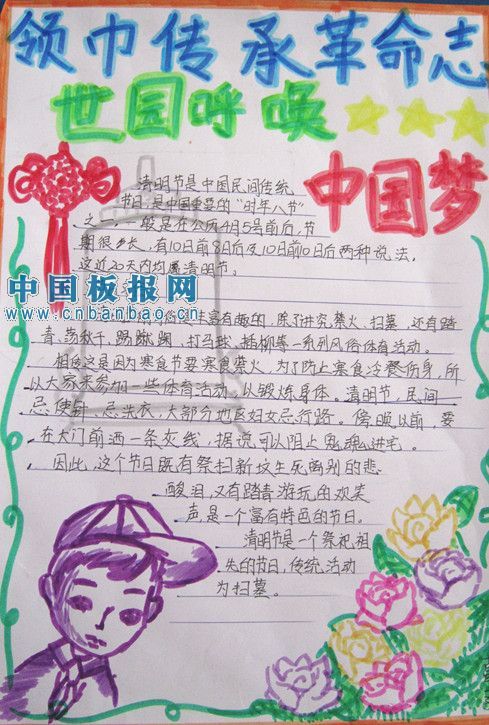 领巾传承革命志
世园呼唤
中国梦
清明节是中国民间传统
节日,是中国重要的“时年八节”
之一,一般是在公历4月5号前后,节
期很长,有10日前8日后及10日前10后两种说法,
这近20天内均属清明节。
中国板报网
www.cnbanbao.cn
习俗是丰富有趣的,除了讲究禁火、扫墓,还有踏
青、荡秋千、踢蹴鞠、打马球、插柳等一系列风俗体育活动。
相传这是因为寒食节要寒食禁火,为了防止寒食冷餐伤身,所
以大家来参加一些体育活动,以锻炼身体。清明节,民间
忌使针,忌洗衣,大部分地区妇女忌行路。傍晚以前,要
在大门前洒一条灰线,据说可以阻止鬼魂进宅。
因此,这个节日既有祭扫新坟生死离别的悲
酸泪,又有踏青游玩的欢笑
声,是一个富有特色的节日。
清明节是一个祭祀祖
先的节日,传统活动
为扫墓。